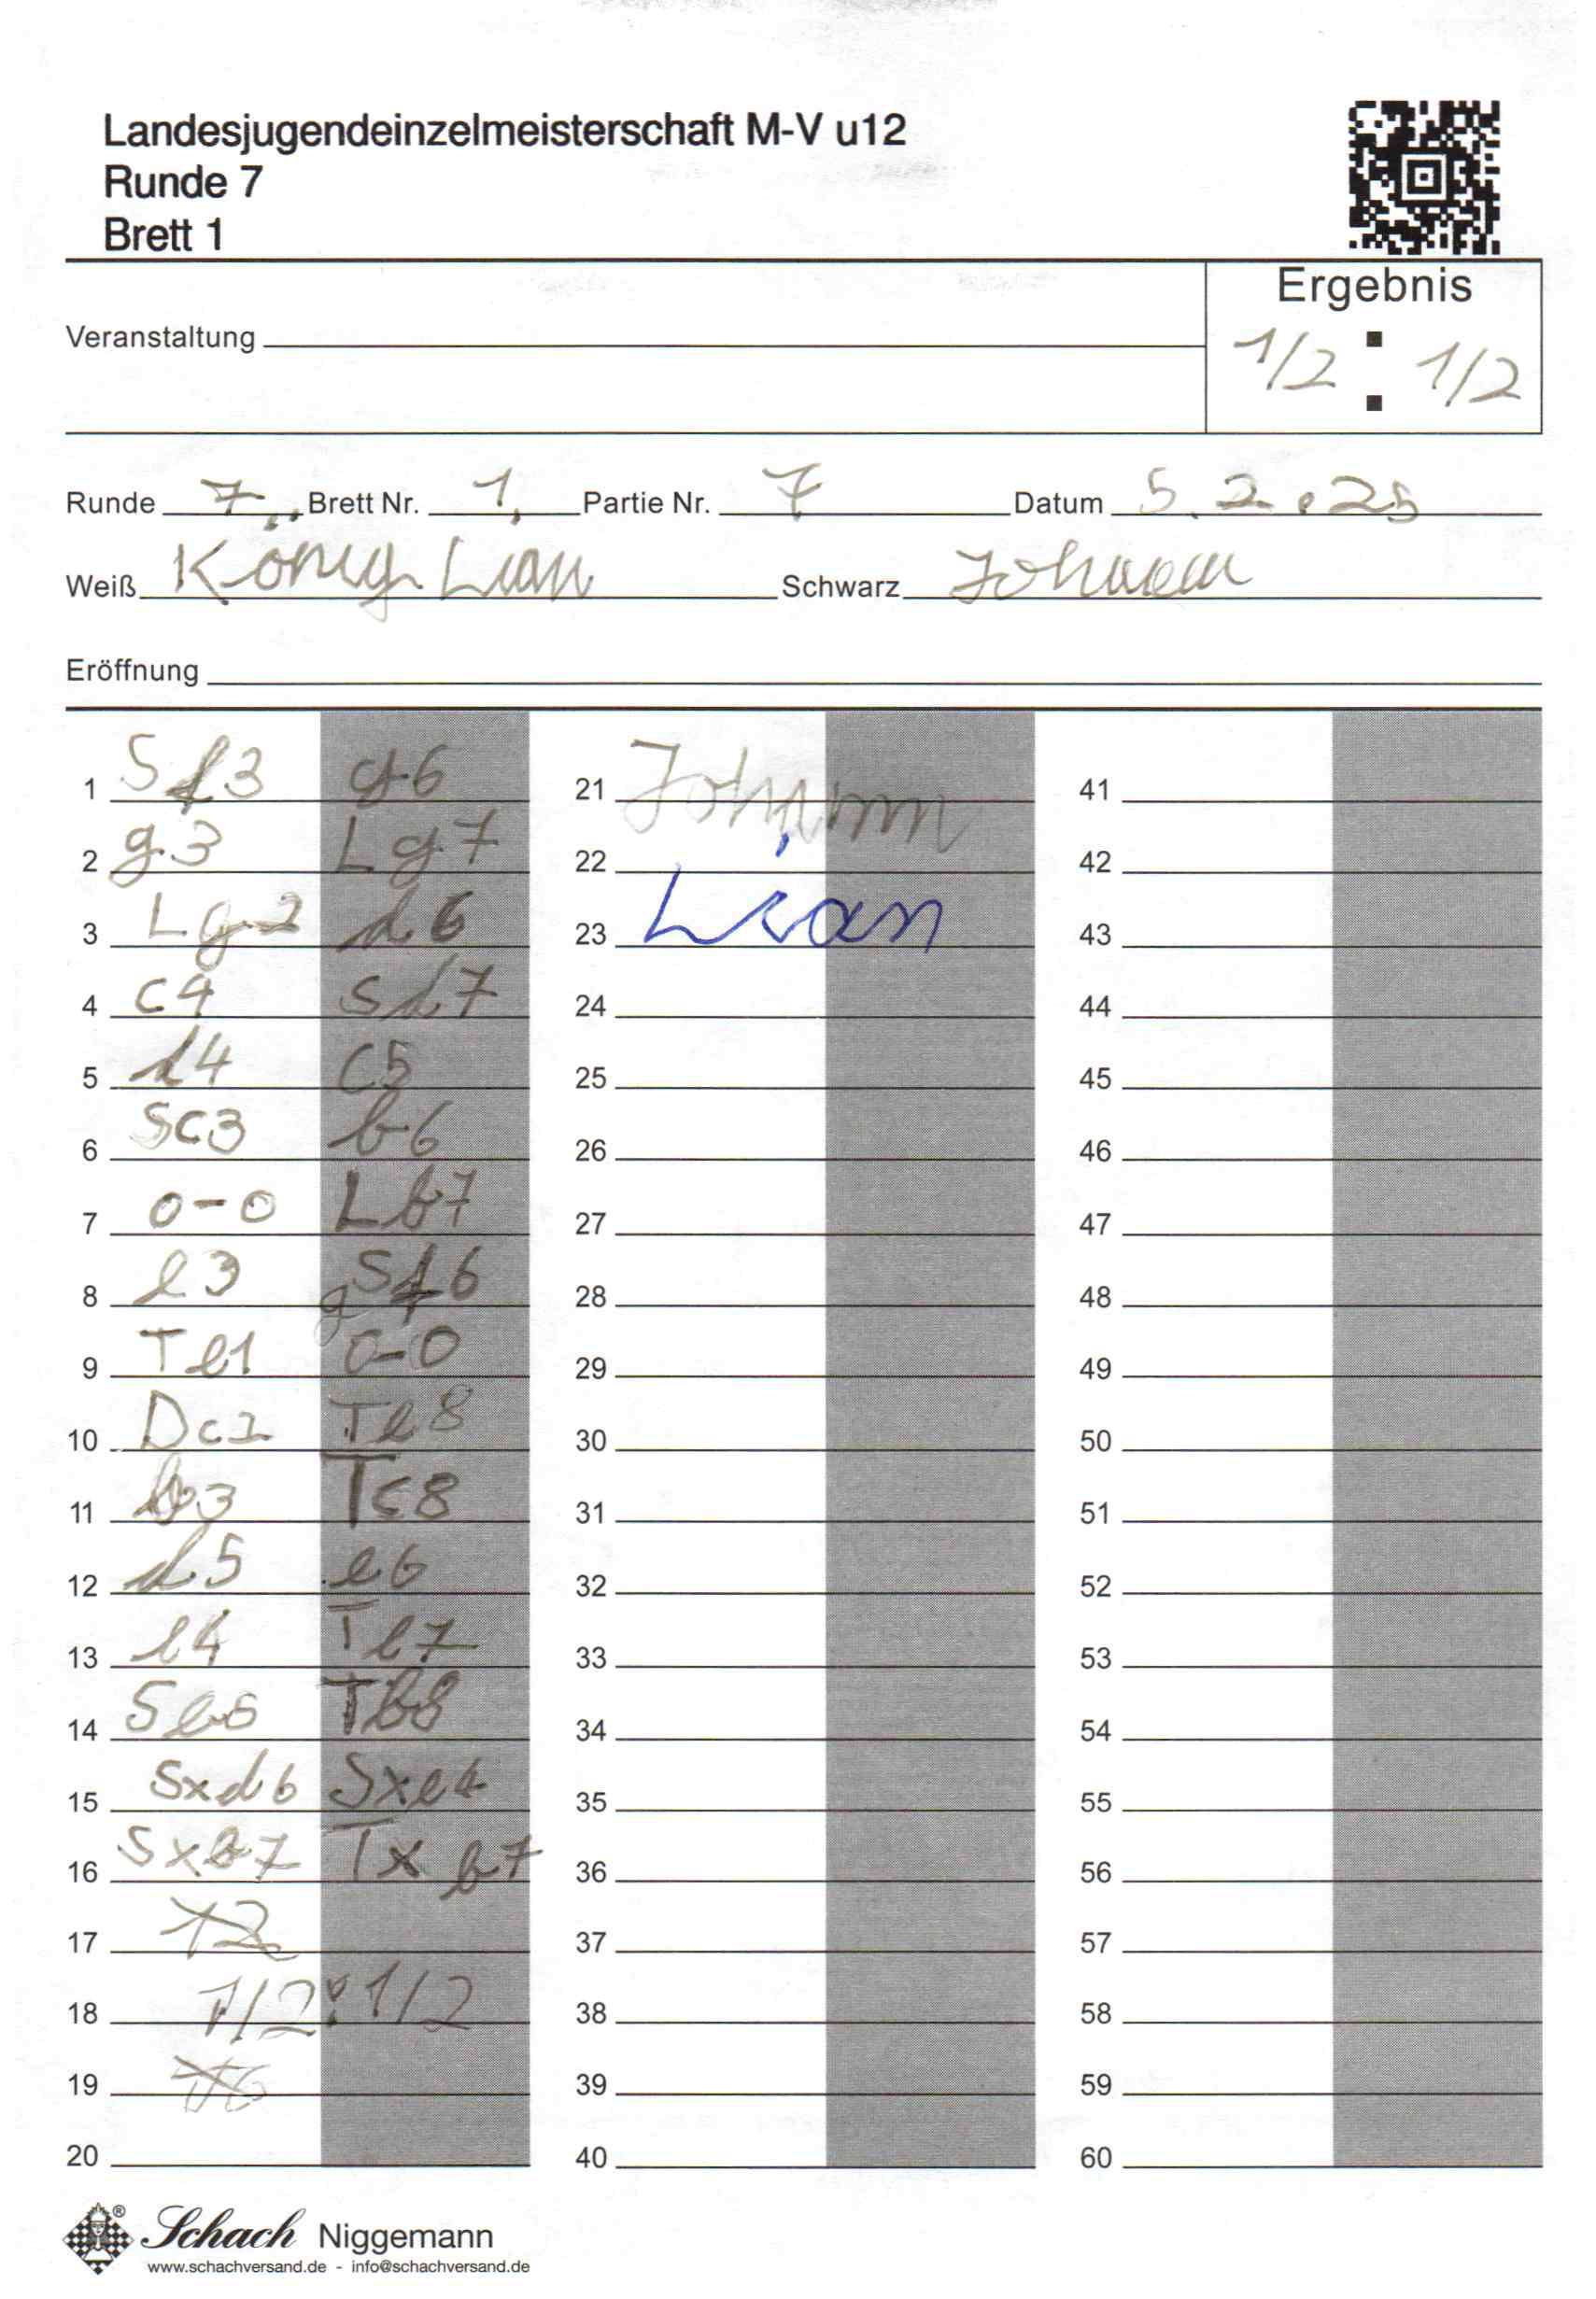 Landesjugendeinzelmeisterschaft M-V u12
Runde 7
Brett 1
Ergebnis
Veranstaltung
1/2 : 1/2
Runde 7. Brett Nr. 1, Partie Nr. 7 Datum 5.2.25
Weiß König Lian Schwarz Johann
Eröffnung
1 Sf3 g6 21 Johann 41
2 g3 Lg7 22 42
3 Lg2 d6 23 Lian 43
4 c4 Sd7 24 44
5 d4 c5 25 45
6 Sc3 b6 26 46
7 0-0 Lb7 27 47
8 e3 gSf6 28 48
9 Te1 0-0 29 49
10 Dc2 Te8 30 50
11 b3 Tc8 31 51
12 d5 e6 32 52
13 e4 Te7 33 53
14 Sb5 Tb8 34 54
15 Sxd6 Sxe4 35 55
16 Sxb7 Txb7 36 56
17 37 57
18 1/2:1/2 38 58
19 39 59
20 40 60
® Schach Niggemann
www.schachversand.de - info@schachversand.de